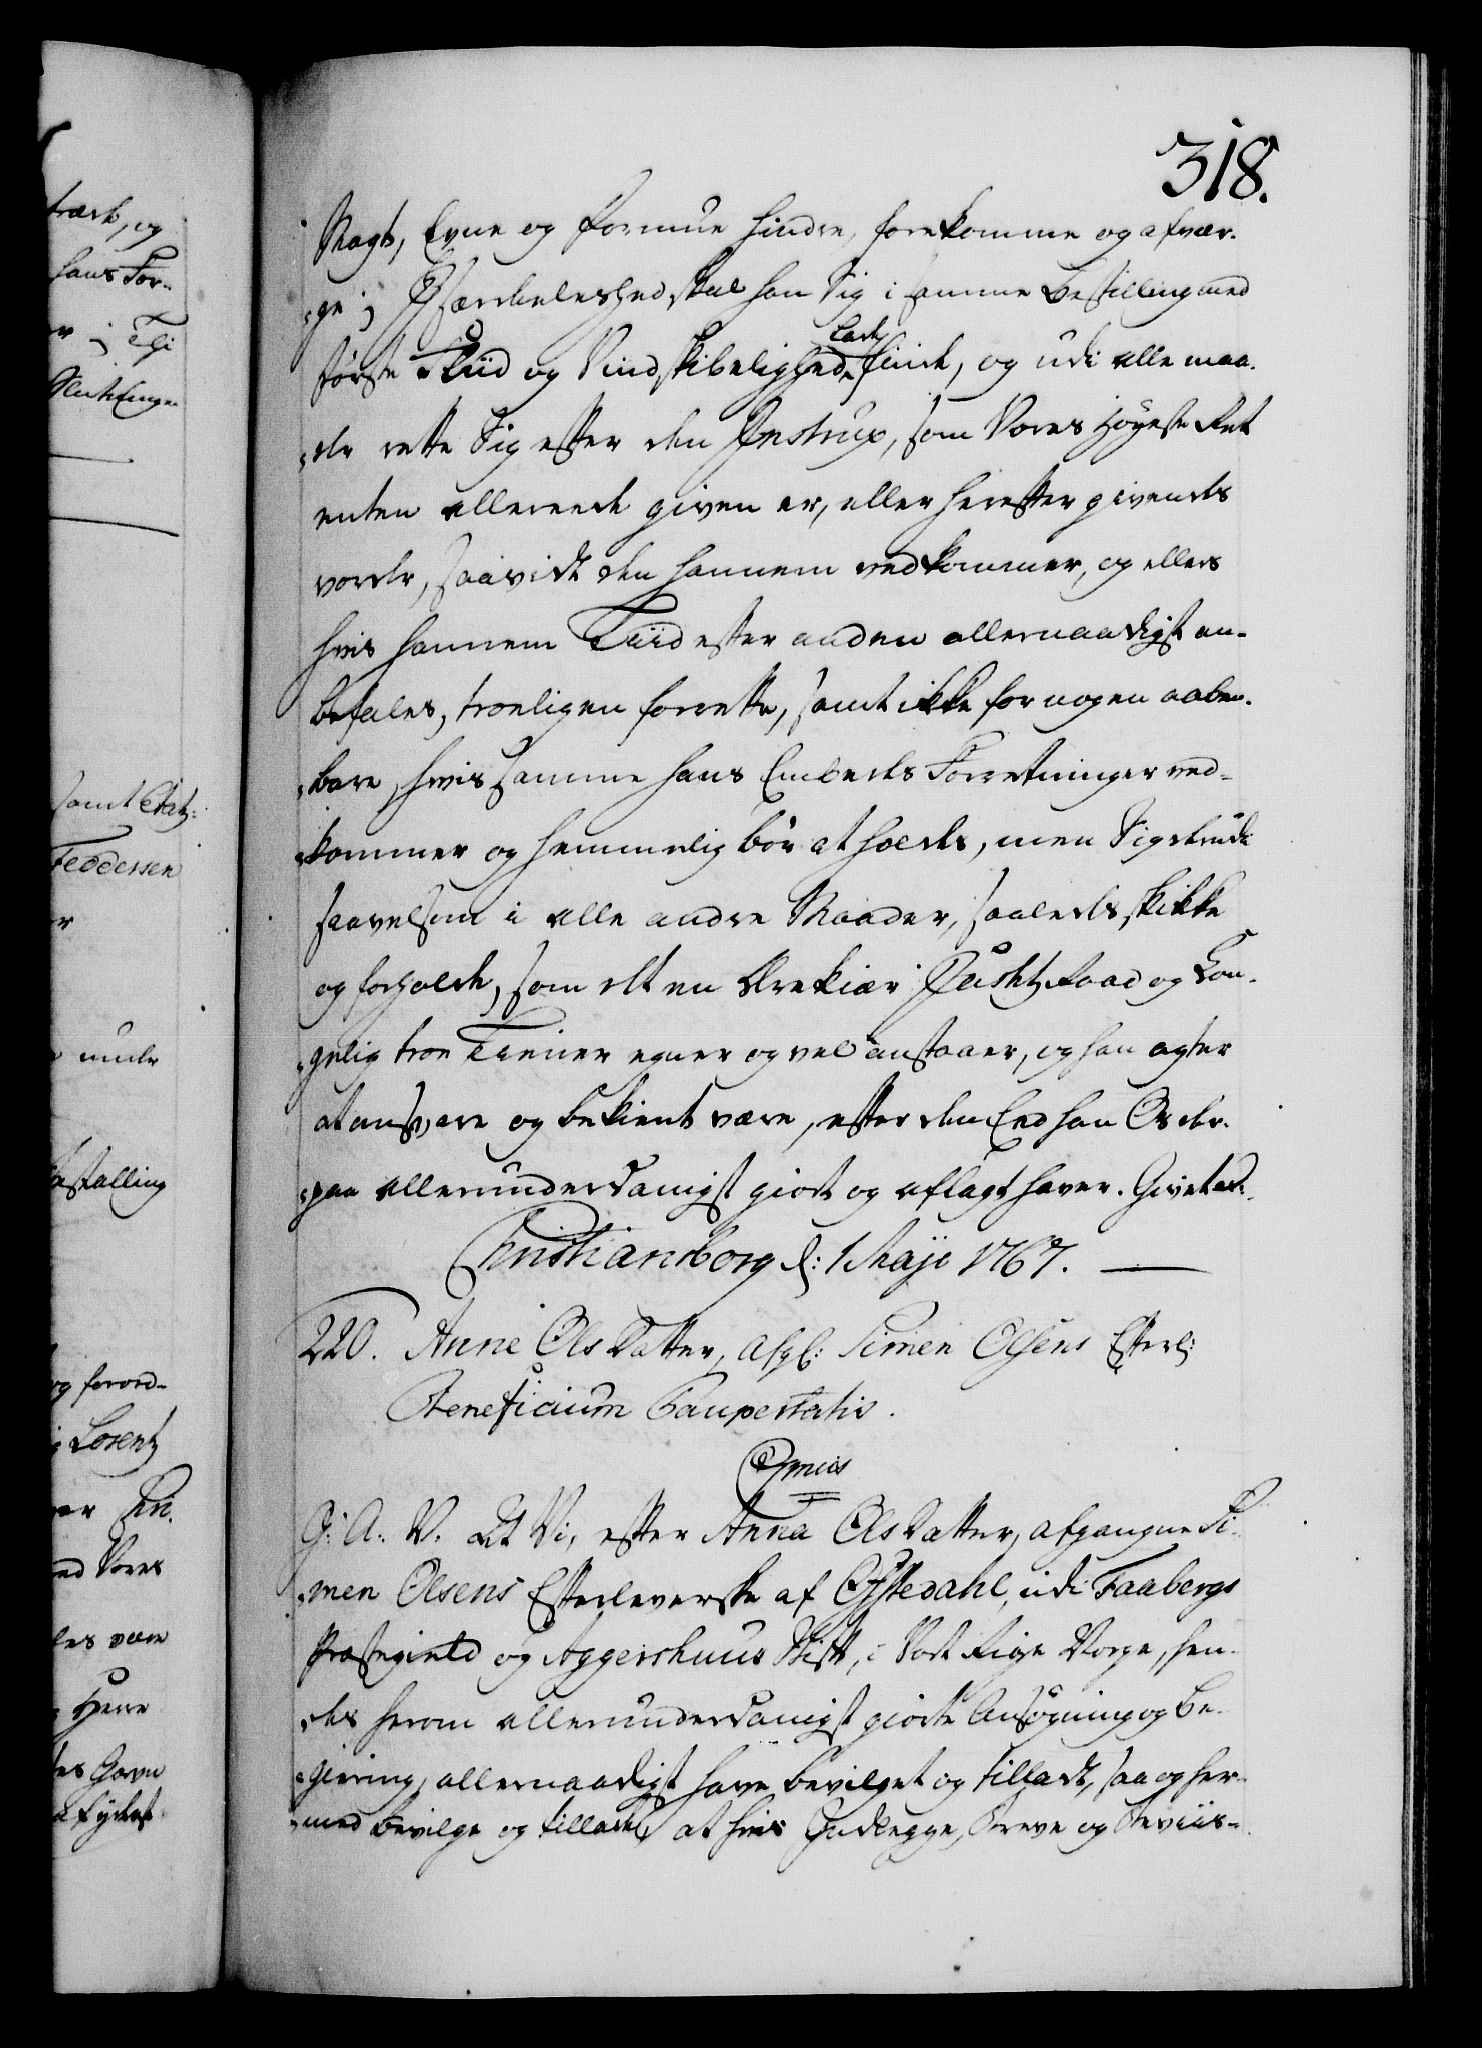 318.
Magt, Evne og Formue hindre, forekomme og afvær-
ge; J Særdeleshed skal han Sig i samme Bestilling med
første Fliid og Vindskibelighed lade finde, og udi alle maa-
der rette Sig efter den Instrux, som Vores Høyeste Ret
enten allereede given er, eller herefter givendes
vorder, saavidt den hannem vedkommer, og ellers
hvis hannem Tiid efter anden allernaadigst an-
befales, troeligen forrette, samt ikke for nogen aaben-
bare, hvis samme hans Embeds Forretninger ved-
kommer og hemmelig bør at holdes, men Sig derudi
saavelsom i alle andre Maader, saaledes skikke
og forholde, som det en Ærekiær Justitz Raad og Kon-
gelig troe Tiener egner og vel anstaaer, og han agter
at ansvare og bekiendt være, efter den Eed han Os der-
paa allerunderdanigst giort og aflagt haver. Givet ad:
Christiansborg d: 1 Maji 1767.
220. Anne Ols Datter, Afg: Simen Olsens Efterl:
Beneficium Paupertatis.
C7mus
G: A: V. At Vi, efter Anna Ols Datter, afgangne Si-
men Olsens Efterleverske af Ofstedahl, udi Faabergs
Præstegield og Aggershuus Stift, i Vort Rige Norge, hen-
des herom allerunderdanigst giorte Ansøgning og Be-
giering, allernaadigst have bevilget og tilladt, saa og her-
med bevilge og tillade, at hvis Indlegge, Breve og Beviis-